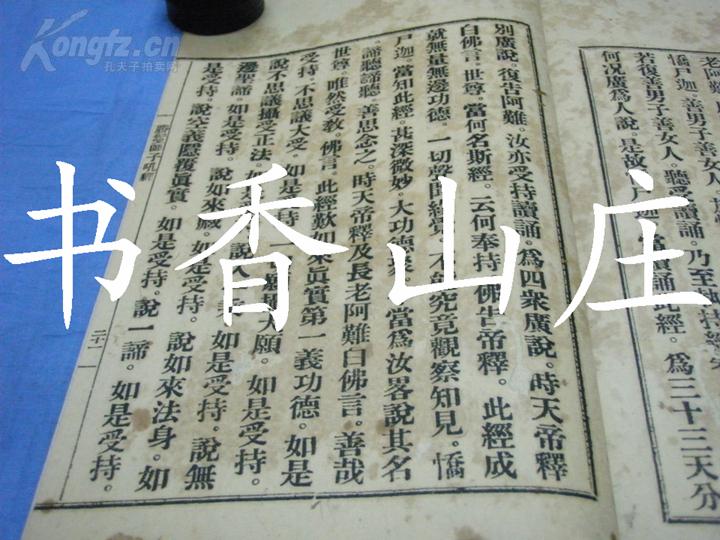 老阿難
憍尸迦。善男子善女人。
若復善男子善女人。聽受讀誦。乃至執持經卷
何況廣爲人說。是故憍尸迦。當讀誦此經。爲三十三天分
別廣說。復告阿難。汝亦受持讀誦。爲四衆廣說。時天帝釋
白佛言。世尊。當何名斯經。云何奉持。佛告帝釋。此經成
就無量無邊功德。一切聲聞緣覺。不能究竟觀察知見。憍
尸迦。當知此經。甚深微妙。大功德聚。今當爲汝畧說其名
諦聽諦聽。善思念之。時天帝釋及長老阿難白佛言。善哉
世尊。唯然受敎。佛言。此經歎如來眞實第一義功德。如是
受持。不思議大受。如是受持。一切願攝大願。如是受持。
說不思議攝受正法。如是受持。說入一乘。如是受持。說無
邊聖諦。如是受持。說如來藏。如是受持。說如來法身。如
是受持。說空義隱覆眞實。如是受持。說一諦。如是受持。
勝鬘師子吼經
二十一
Kongfz.cn
孔夫子拍卖网
书香山庄